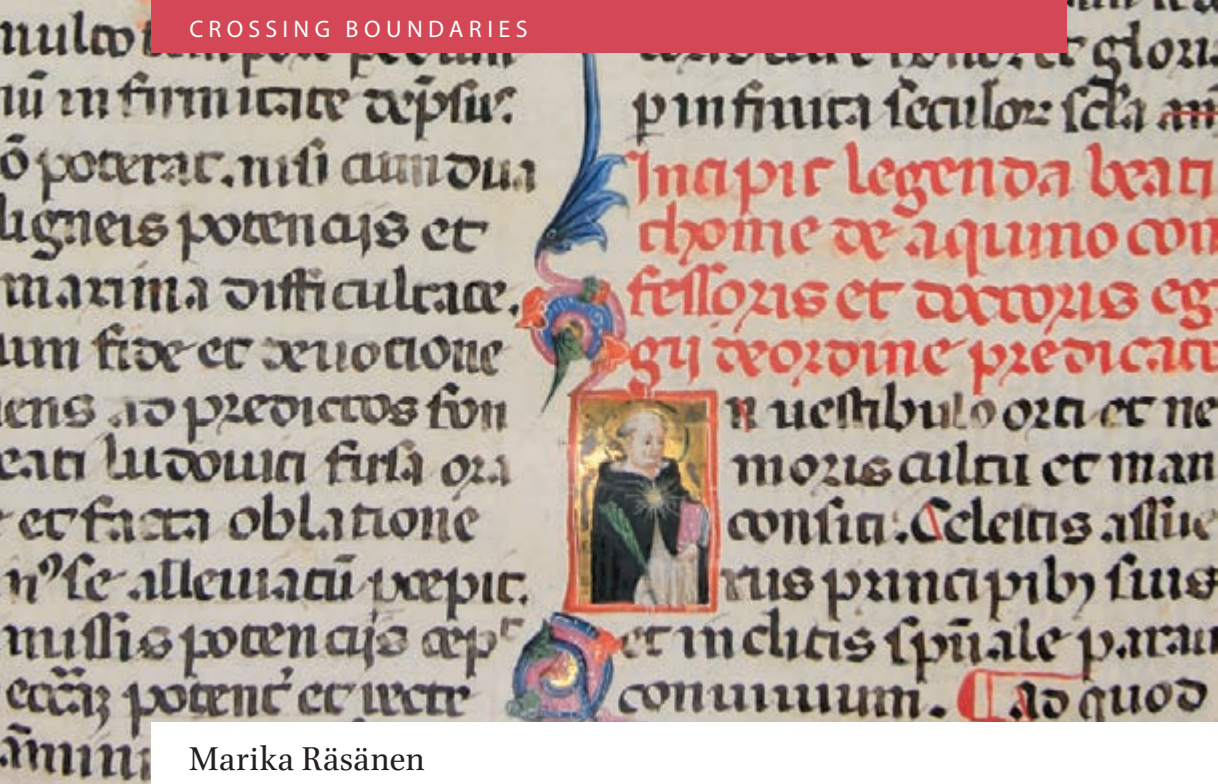 CROSSING BOUNDARIES
multo
in firmitate
poterat. nisi cum dua
ligneis potencijs et
maxima difficultate.
um fide et deuotione
iens ad predictos fon
eati ludouici fusa ora
et facta oblatione
se alleuiatū cepit.
missis potencijs cep
et recte
et gloria
p infinita seculoꝝ scła
Incipit legenda beati
thome de aquino con
fessoris et doctoris eg
gij de ordine predicato
n uestibulo orti et ne
moris cultu et man
consiti. Celestis assue
rus principibꝫ suis
et inclitis spūale parau
conuiuium. Ad quod
Marika Räsänen